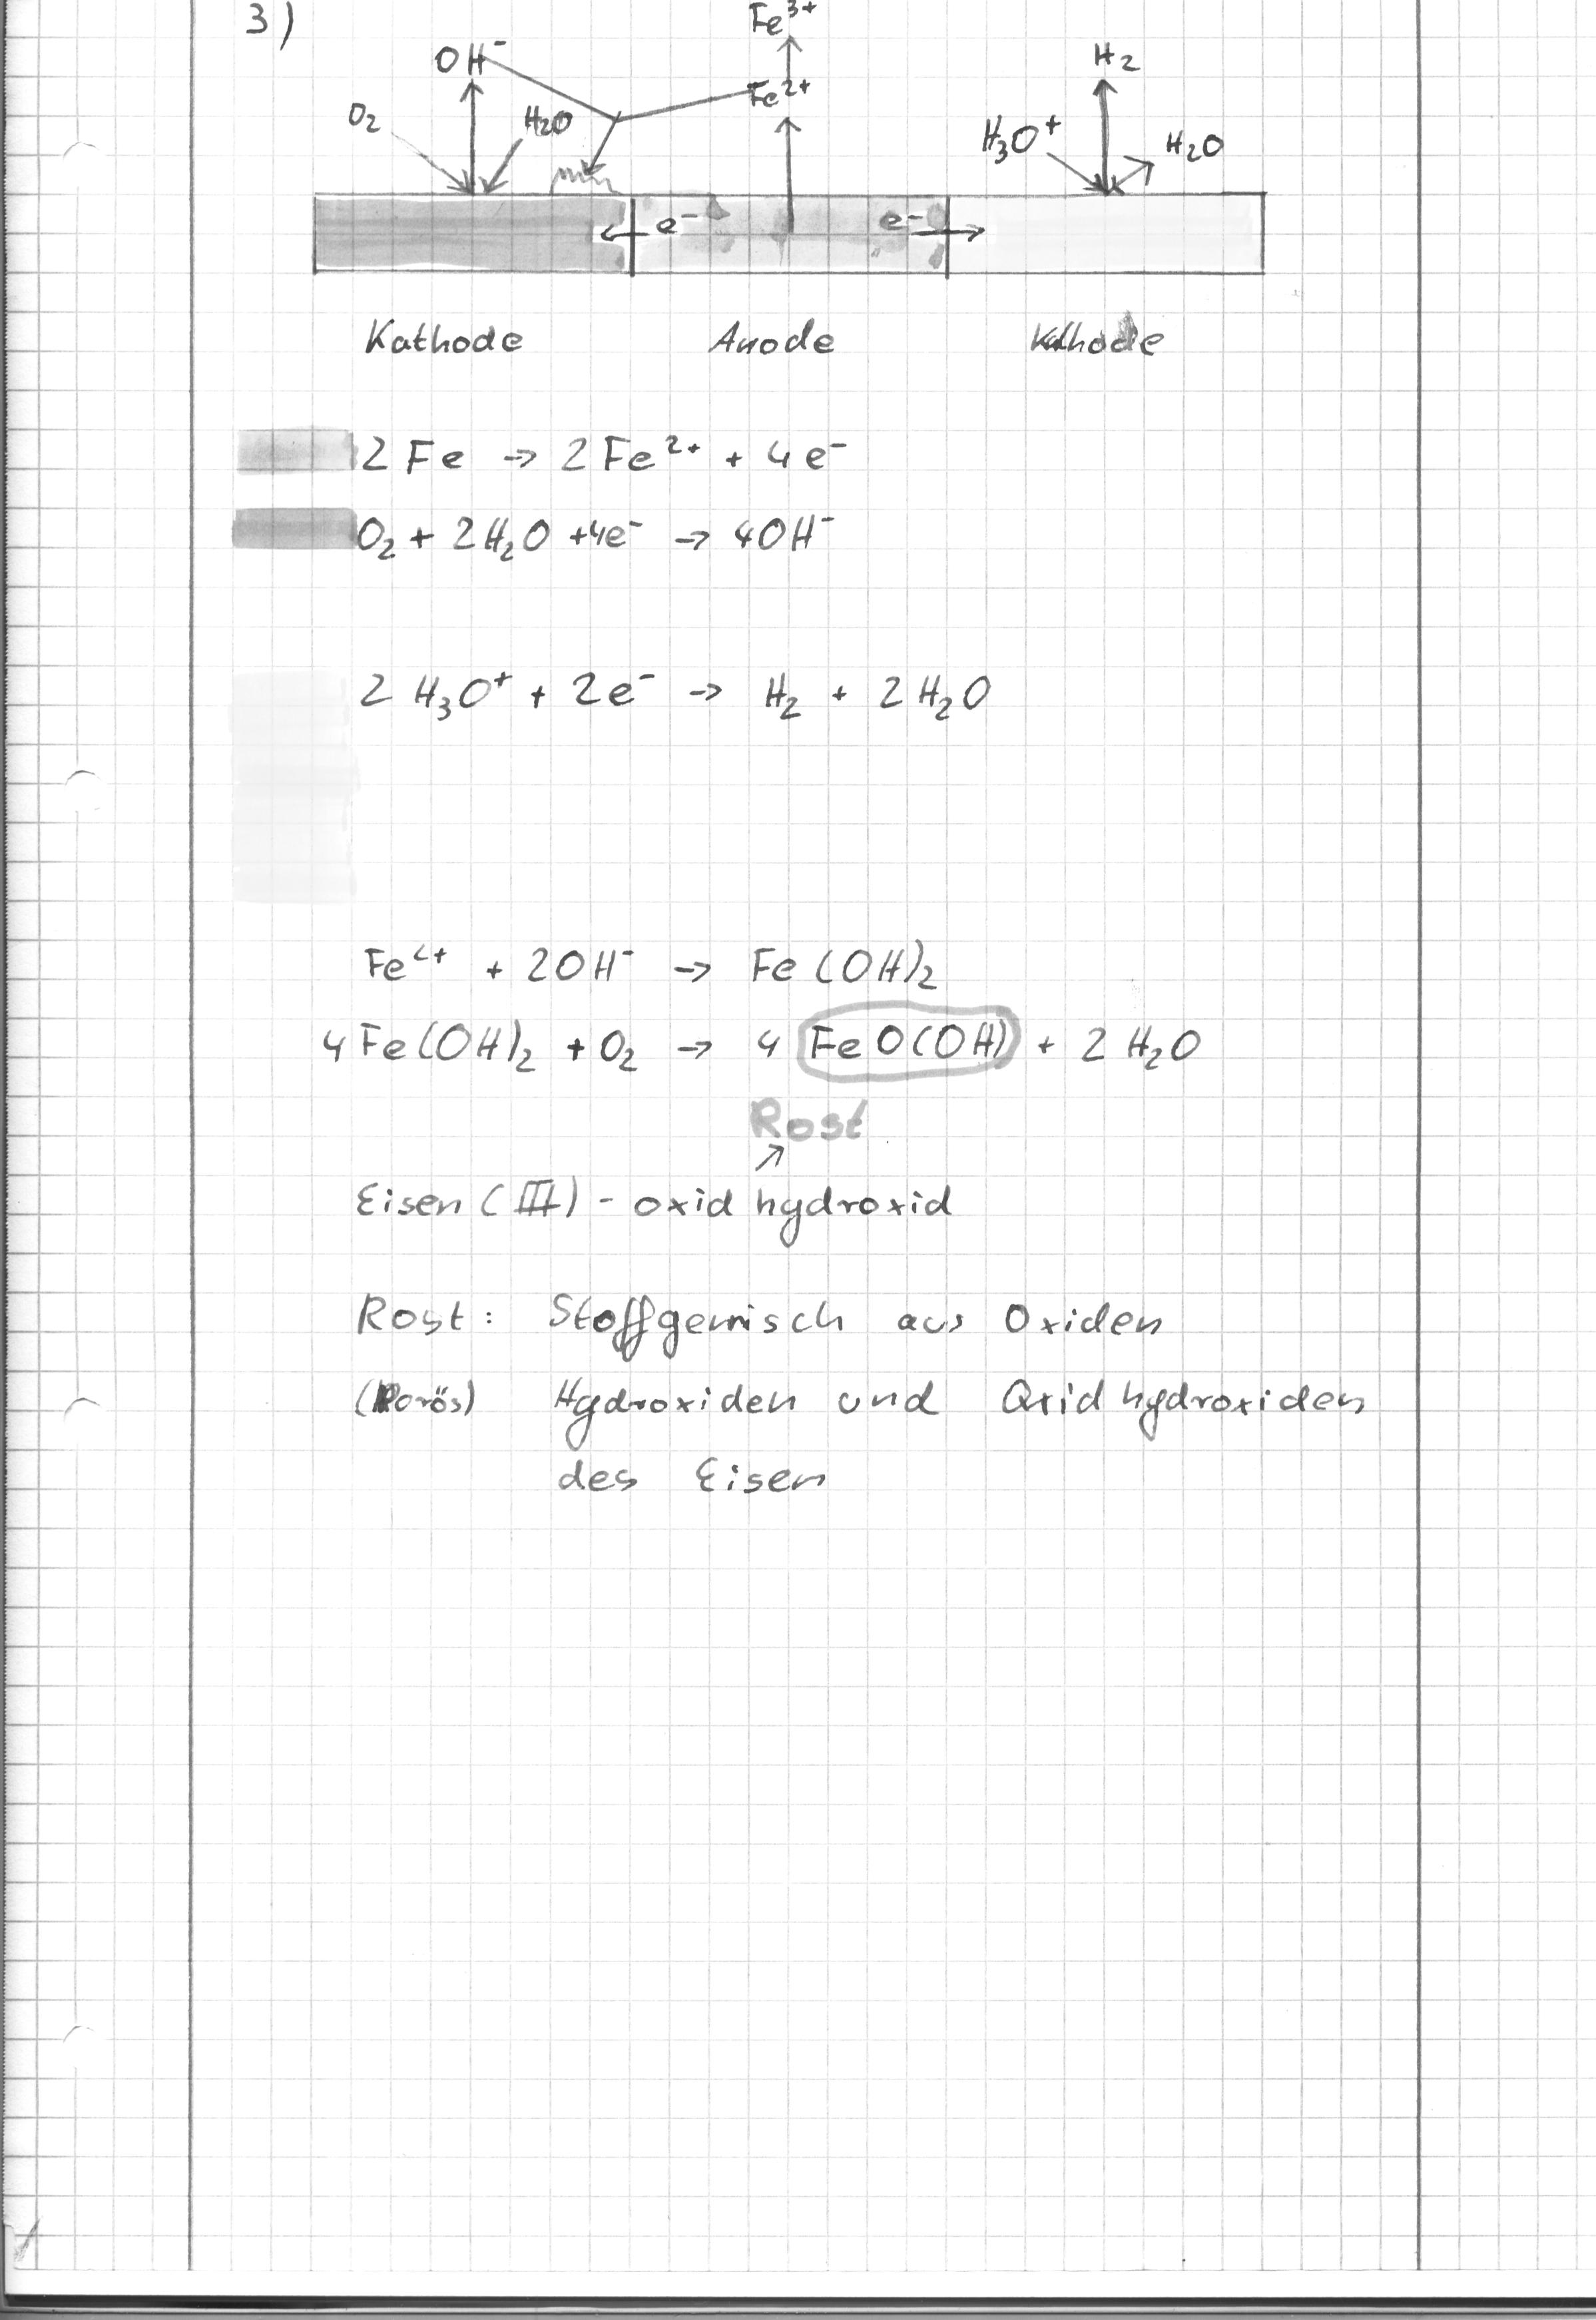 3)
Fe³⁺
OH⁻
H₂
Fe²⁺
O₂
H₂O
H₃O⁺
H₂O
e⁻
e⁻
Kathode Anode Kathode
2 Fe → 2 Fe²⁺ + 4 e⁻
O₂ + 2 H₂O + 4e⁻ → 4 OH⁻
2 H₃O⁺ + 2 e⁻ → H₂ + 2 H₂O
Fe²⁺ + 2 OH⁻ → Fe(OH)₂
4 Fe(OH)₂ + O₂ → 4 FeO(OH) + 2 H₂O
Rost
Eisen (III) - oxid hydroxid
Rost: Stoffgemisch aus Oxiden
(Porös) Hydroxiden und Oxid hydroxiden
des Eisen